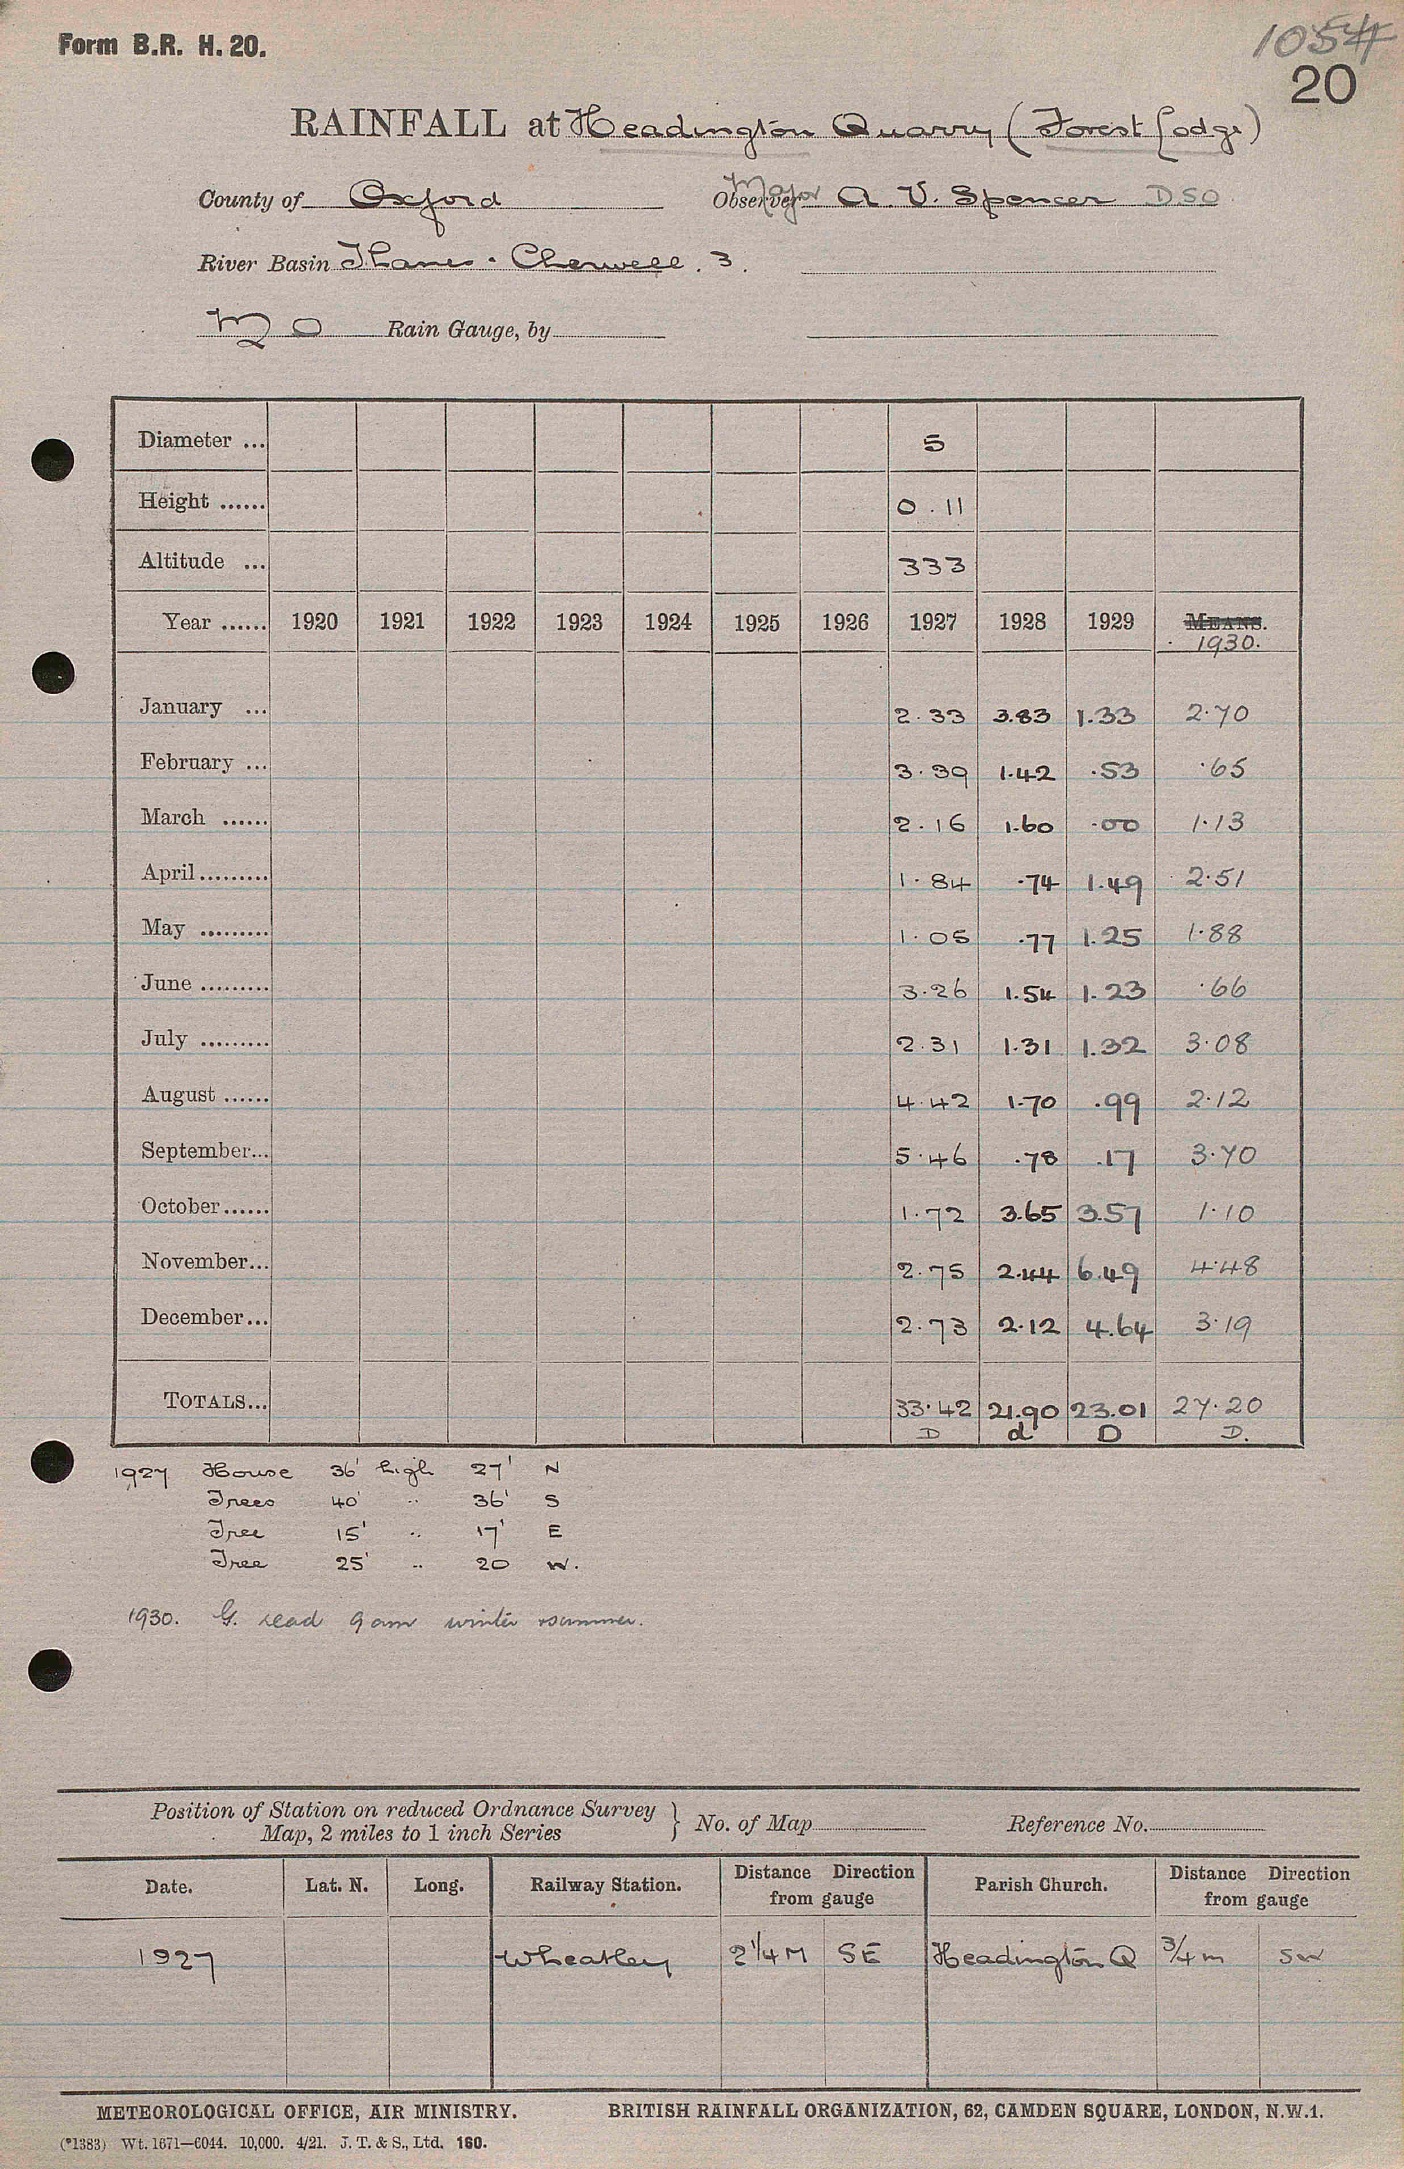 Form B.R. H. 20.
1054
20
RAINFALL at Headington Quarry (Forest Lodge)
County of Oxford Observer Major A. V. Spencer DSO
River Basin Thames · Cherwell . 3.
M O Rain Gauge, by
Diameter ... 5
Height ...... 0 . 11
Altitude ... 333
Year ...... 1920 1921 1922 1923 1924 1925 1926 1927 1928 1929 MEANS. 1930.
January ... 2.33 3.83 1.33 2.70
February ... 3.39 1.42 .53 .65
March ...... 2.16 1.60 .00 1.13
April ......... 1.84 .74 1.49 2.51
May ......... 1.05 .77 1.25 1.88
June ......... 3.26 1.54 1.23 .66
July ......... 2.31 1.31 1.32 3.08
August ...... 4.42 1.70 .99 2.12
September... 5.46 .78 .17 3.70
October...... 1.72 3.65 3.57 1.10
November... 2.75 2.44 6.49 4.48
December... 2.73 2.12 4.64 3.19
TOTALS... 33.42 21.90 23.01 27.20
D d D D.
1927 House 36' high 27' N
Trees 40' .. 36' S
Tree 15' .. 17' E
Tree 25' .. 20 W.
1930. G. read 9 am winter & summer.
Position of Station on reduced Ordnance Survey Map, 2 miles to 1 inch Series } No. of Map Reference No.
Date. Lat. N. Long. Railway Station. Distance Direction from gauge Parish Church. Distance Direction from gauge
1927 Wheatley 2 1/4 M SE Headington Q 3/4 m SW
METEOROLOGICAL OFFICE, AIR MINISTRY. BRITISH RAINFALL ORGANIZATION, 62, CAMDEN SQUARE, LONDON, N.W.1.
(*1383) Wt. 1671—6044. 10,000. 4/21. J. T. & S., Ltd. 160.